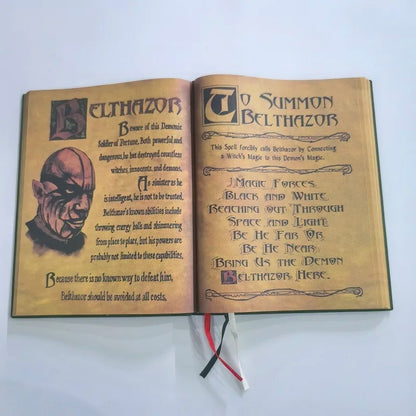 BELTHAZOR
Beware of this Demonic
Soldier of Fortune. Both powerful and
dangerous, he has destroyed countless
witches, innocents, and demons.
As sinister as he
is intelligent, he is not to be trusted.
Belthazor's known abilities include
throwing energy balls and shimmering
from place to place, but his powers are
probably not limited to these capabilities.
Because there is no known way to defeat him,
Belthazor should be avoided, at all costs.
TO SUMMON
BELTHAZOR
This Spell forcibly calls Belthazor by Connecting
a Witch's Magic to this Demon's Magic.
Magic Forces
Black and White
Reaching out Through
Space and Light
Be He Far Or
Be He Near
Bring Us the Demon
Belthazor Here.